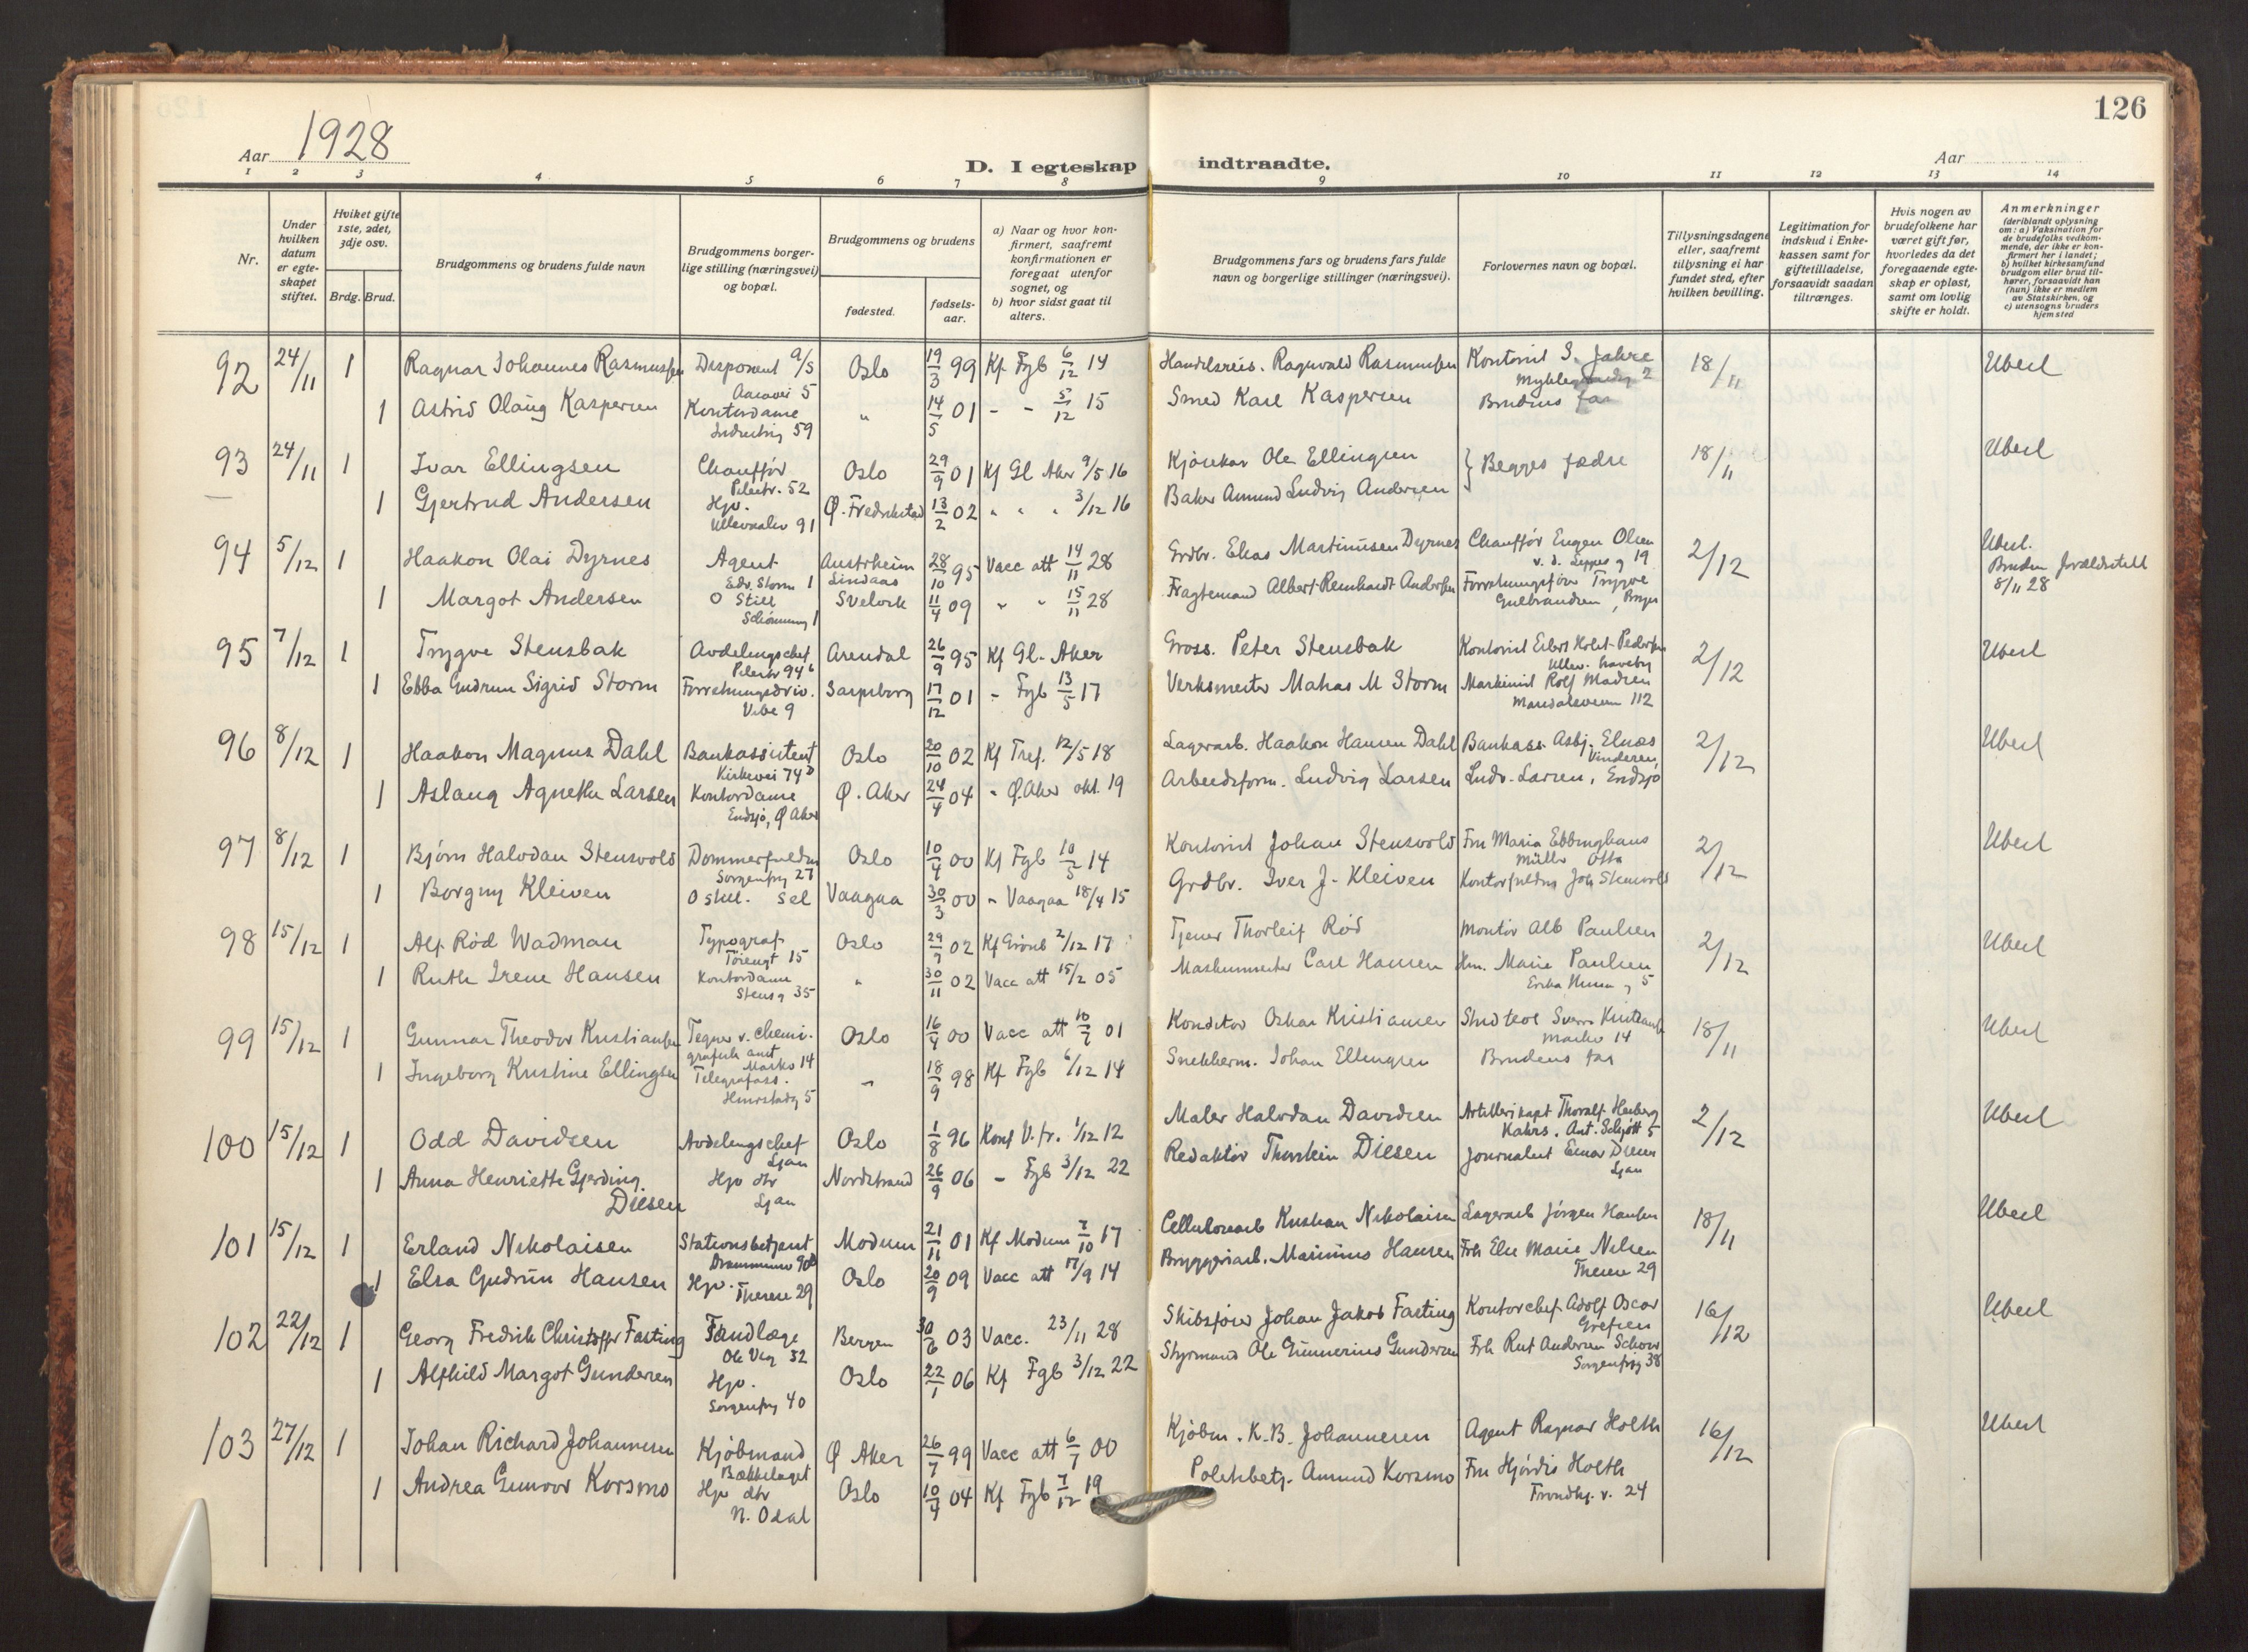 126
Aar 1928
D. I egteskap indtraadte.
Aar
1 2 3 4 5 6 7 8 9 10 11 12 13 14
Nr.
Under hvilken datum er egteskapet stiftet.
Hviket gifte 1ste, 2det, 3dje osv.
Brdg. Brud.
Brudgommens og brudens fulde navn
Brudgommens borgerlige stilling (næringsvei) og bopæl.
Brudgommens og brudens
fødested.
fødselsaar.
a) Naar og hvor konfirmert, saafremt konfirmationen er foregaat utenfor sognet, og
b) hvor sidst gaat til alters.
Brudgommens fars og brudens fars fulde navn og borgerlige stillinger (næringsvei).
Forlovernes navn og bopæl.
Tillysningsdagene eller, saafremt tillysning ei har fundet sted, efter hvilken bevilling.
Legitimation for indskud i Enkekassen samt for giftetilladelse, forsaavidt saadan tiltrænges.
Hvis nogen av brudefolkene har været gift før, hvorledes da det foregaaende egteskap er opløst, samt om lovlig skifte er holdt.
Anmerkninger (deriblandt oplysning om: a) Vaksination for de brudefolks vedkommende, der ikke er konfirmert her i landet; b) hvilket kirkesamfund brudgom eller brud tilhører, forsaavidt han (hun) ikke er medlem av Statskirken, og c) utensogns bruders hjemsted
92 24/11 1 Ragnar Johannes Rasmussen Disponent A/S Oslo 19/3 99 Kf Fgb 6/12 14 Handelsreis. Ragnvald Rasmussen Kontorist S. Jahre 18/11 Uberl
Aasavei 5
1 Astrid Olaug Kaspersen Kontordame " 14/5 01 - - 5/12 15 Smed Karl Kaspersen Brudens far
Industrig 59
93 24/11 1 Ivar Ellingsen Chauffør Oslo 29/9 01 Kf Gl Aker 9/5 16 Kjørekar Ole Ellingsen } Begges fædre 18/11 Uberl
Pilestr. 52
1 Gjertrud Andersen Hjv. Ø. Fredrikstad 13/2 02 " " " 3/12 16 Baker Amund Ludvig Andersen
Ullevaalsv 91
94 5/12 1 Haakon Olai Dyrnes Agent Austrheim 28/10 95 Vacc att 14/11 28 Grdbr. Elias Martinusen Dyrnes Chauffør Eugen Olsen 2/12 Uberl.
Edv. Storm 1 Lindaas
1 Margot Andersen O Still Svelvik 11/4 09 " " 15/11 28 Fragtemand Albert Reinhardt Andersen Forretningsfører Trygve Gulbrandsen
8/11 28
95 7/12 1 Trygve Stensbak Avdelingschef Arendal 26/9 95 Kf Gl. Aker Gross. Peter Stensbak Kontorist Eilert Holst-Pedersen 2/12 Uberl
Pilestr 94b Ullev. haveby
1 Ebba Gudrun Sigrid Storm Forretningsdriv. Sarpsborg 17/12 01 - Fgb 13/5 17 Verksmester Mahas M Storm Maskinist Rolf Madsen
Vibe 9 Maridalsveien 112
96 8/12 1 Haakon Magnus Dahl Bankassistent Oslo 20/10 02 Kf Tref. 12/5 18 Lagerarb. Haakon Hansen Dahl Bankass. Asbj. Elnæs 2/12 Uberl
Kirkevei 74D Vinderen,
1 Aslaug Agnethe Larsen Kontordame Ø. Aker 24/4 04 " Ø. Aker okt. 19 Arbeidsform. Ludvig Larsen Ludv. Larsen, Endsjø
Endsjø, Ø Aker
97 8/12 1 Bjørn Halvdan Stensvold Dommerfuldm Oslo 10/4 00 Kf Fgb 10/5 14 Kontorist Johan Stensvold Fru Maria Ebbinghaus Müller Otta 2/12 Uberl
Sorgenfrig 27
1 Borgny Kleiven O still. Sel Vaagaa 30/3 00 " Vaagaa 18/4 15 Grdbr. Iver J. Kleiven Kontorfuldm Joh Stensvold
98 15/12 1 Alf Rød Wadman Typograf Oslo 29/7 02 Kf Grønl 2/12 17 Tjener Thorleif Rød Montør Alb Paulsen 2/12 Uberl
15
1 Ruth Irene Hansen Kontordame " 30/11 02 Vacc att 15/2 05 Maskinmester Carl Hansen Marie Paulsen
Stensg 35 5
99 15/12 1 Gunnar Theodor Kristiansen Tegner v. chemigrafisk anst Oslo 16/4 00 Vacc att 10/7 01 Konditor Oskar Kristiansen Stud teol Sverre Kristiansen 18/11 Uberl
Markv 14 Markv 14
1 Ingeborg Kristine Ellingsen Telegrafass. " 18/9 98 Kf Fgb 6/12 14 Snekkerm. Johan Ellingsen Brudens far
5
100 15/12 1 Odd Davidsen Avdelingschef Oslo 1/8 96 Konf V. fr. 1/12 12 Maler Halvdan Davidsen Artillerikapt Thoralf Heiberg Kahrs. Ant. Schjøtt 5 2/12 Uberl
Ljan
1 Anna Henriette Gjerding Diesen Hjv dtr Nordstrand 26/9 06 - Fgb 3/12 22 Redaktør Thorstein Diesen Journalist Einar Diesen
Ljan Ljan
101 15/12 1 Erland Nikolaisen Stationsbetjent Modum 21/11 01 Kf Modum 7/10 17 Cellulosearb Kristian Nikolaisen Lagerarb Jørgen Hansen 18/11 Uberl
1 Elsa Gudrun Hansen Hjv. Oslo 20/9 09 Vacc att 17/9 14 Bryggeriarb. Marinius Hansen Frk Else Marie Nilsen
Therese 29 Therese 29
102 22/12 1 Georg Fredrik Christoffer Fasting Tandlæge Bergen 30/6 03 Vacc. 23/11 28 Skibsfører Johan Jakob Fasting Kontorchef Adolf Oscar Grefsen 16/12 Uberl
Ole Vig 32
1 Alfhild Margot Gundersen Hjv. Oslo 22/1 06 Kf Fgb 3/12 22 Styrmand Ole Gunnerius Gundersen Frk Rut Andersen Schow
Sorgenfrig 40 Sorgenfrig 38
103 27/12 1 Johan Richard Johannesen Kjøbmand Ø Aker 26/7 99 Vacc att 6/7 00 Kjøbm. K. B. Johannesen Agent Ragnar Holth 16/12 Uberl
Bækkelaget
1 Andrea Gunvor Korsmo Hjv dtr Oslo 10/4 04 Kf Fgb 7/12 19 Politibetj. Amund Korsmo Fru Hjørdis Holth
N. Odal Trondhj. v. 24